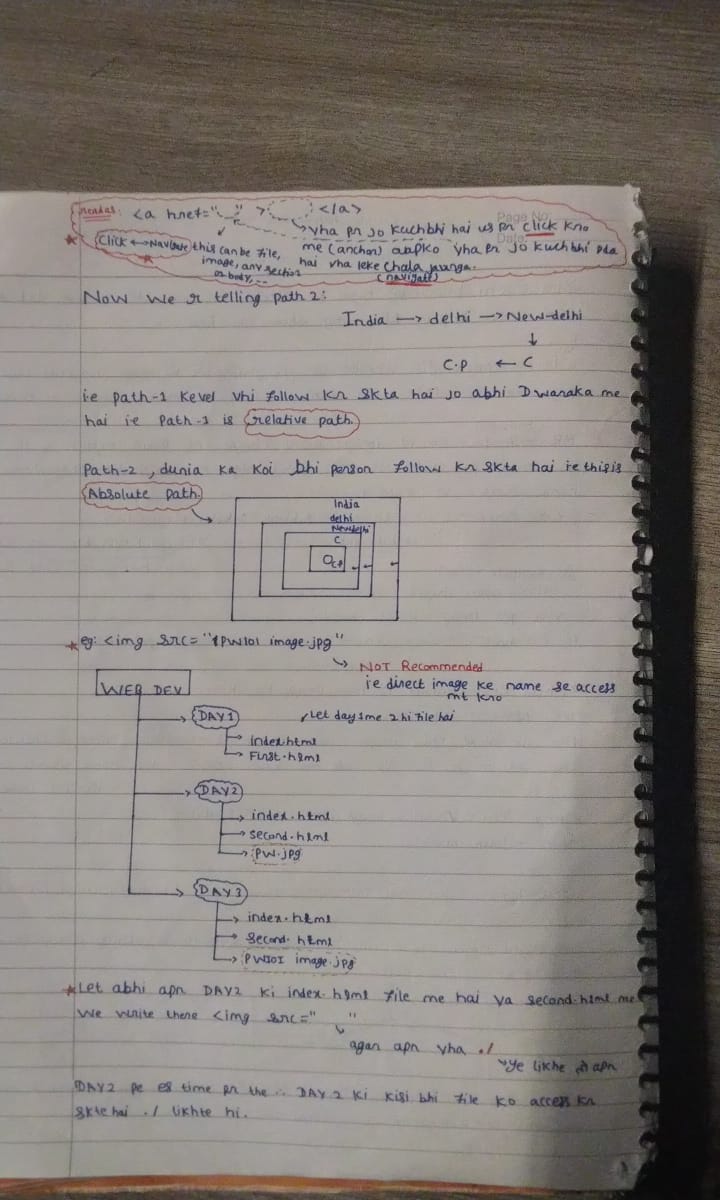 <a href=" " > </a>
Page No.
Date:
yha pr jo kuchbhi hai us pr click kro
Click ↔ Navigate this can be file, me (anchor) aapko yha pr jo kuchbhi pda
image, any section hai vha leke chala jaunga.
or body, .. (navigate)
Now we r telling path 2:
India → delhi → New-delhi
↓
C.P ← C
ie path-1 kevel vhi follow kr skta hai jo abhi Dwaraka me
hai ie Path-1 is relative path.
Path-2 , dunia ka koi bhi person follow kr skta hai ie this is
Absolute path.
India
delhi
Newdelhi
C
CP
eg: <img src="PW101 image.jpg"
→ NOT Recommended
ie direct image ke name se access
mt kro
WEB DEV
DAY1
Let day1 me 2 hi file hai
→ index.html
→ First.html
DAY2
→ index.html
→ second.html
→ PW.jpg
DAY3
→ index.html
→ second.html
→ PW101 image.jpg
★Let abhi apn DAY2 ki index.html file me hai ya second.html me
We write there <img src=" "
agar apn vha ./
ye likhe to apn
DAY2 pe es time pr the ∴ DAY2 ki kisi bhi file ko access kr
skte hai ./ likhte hi.